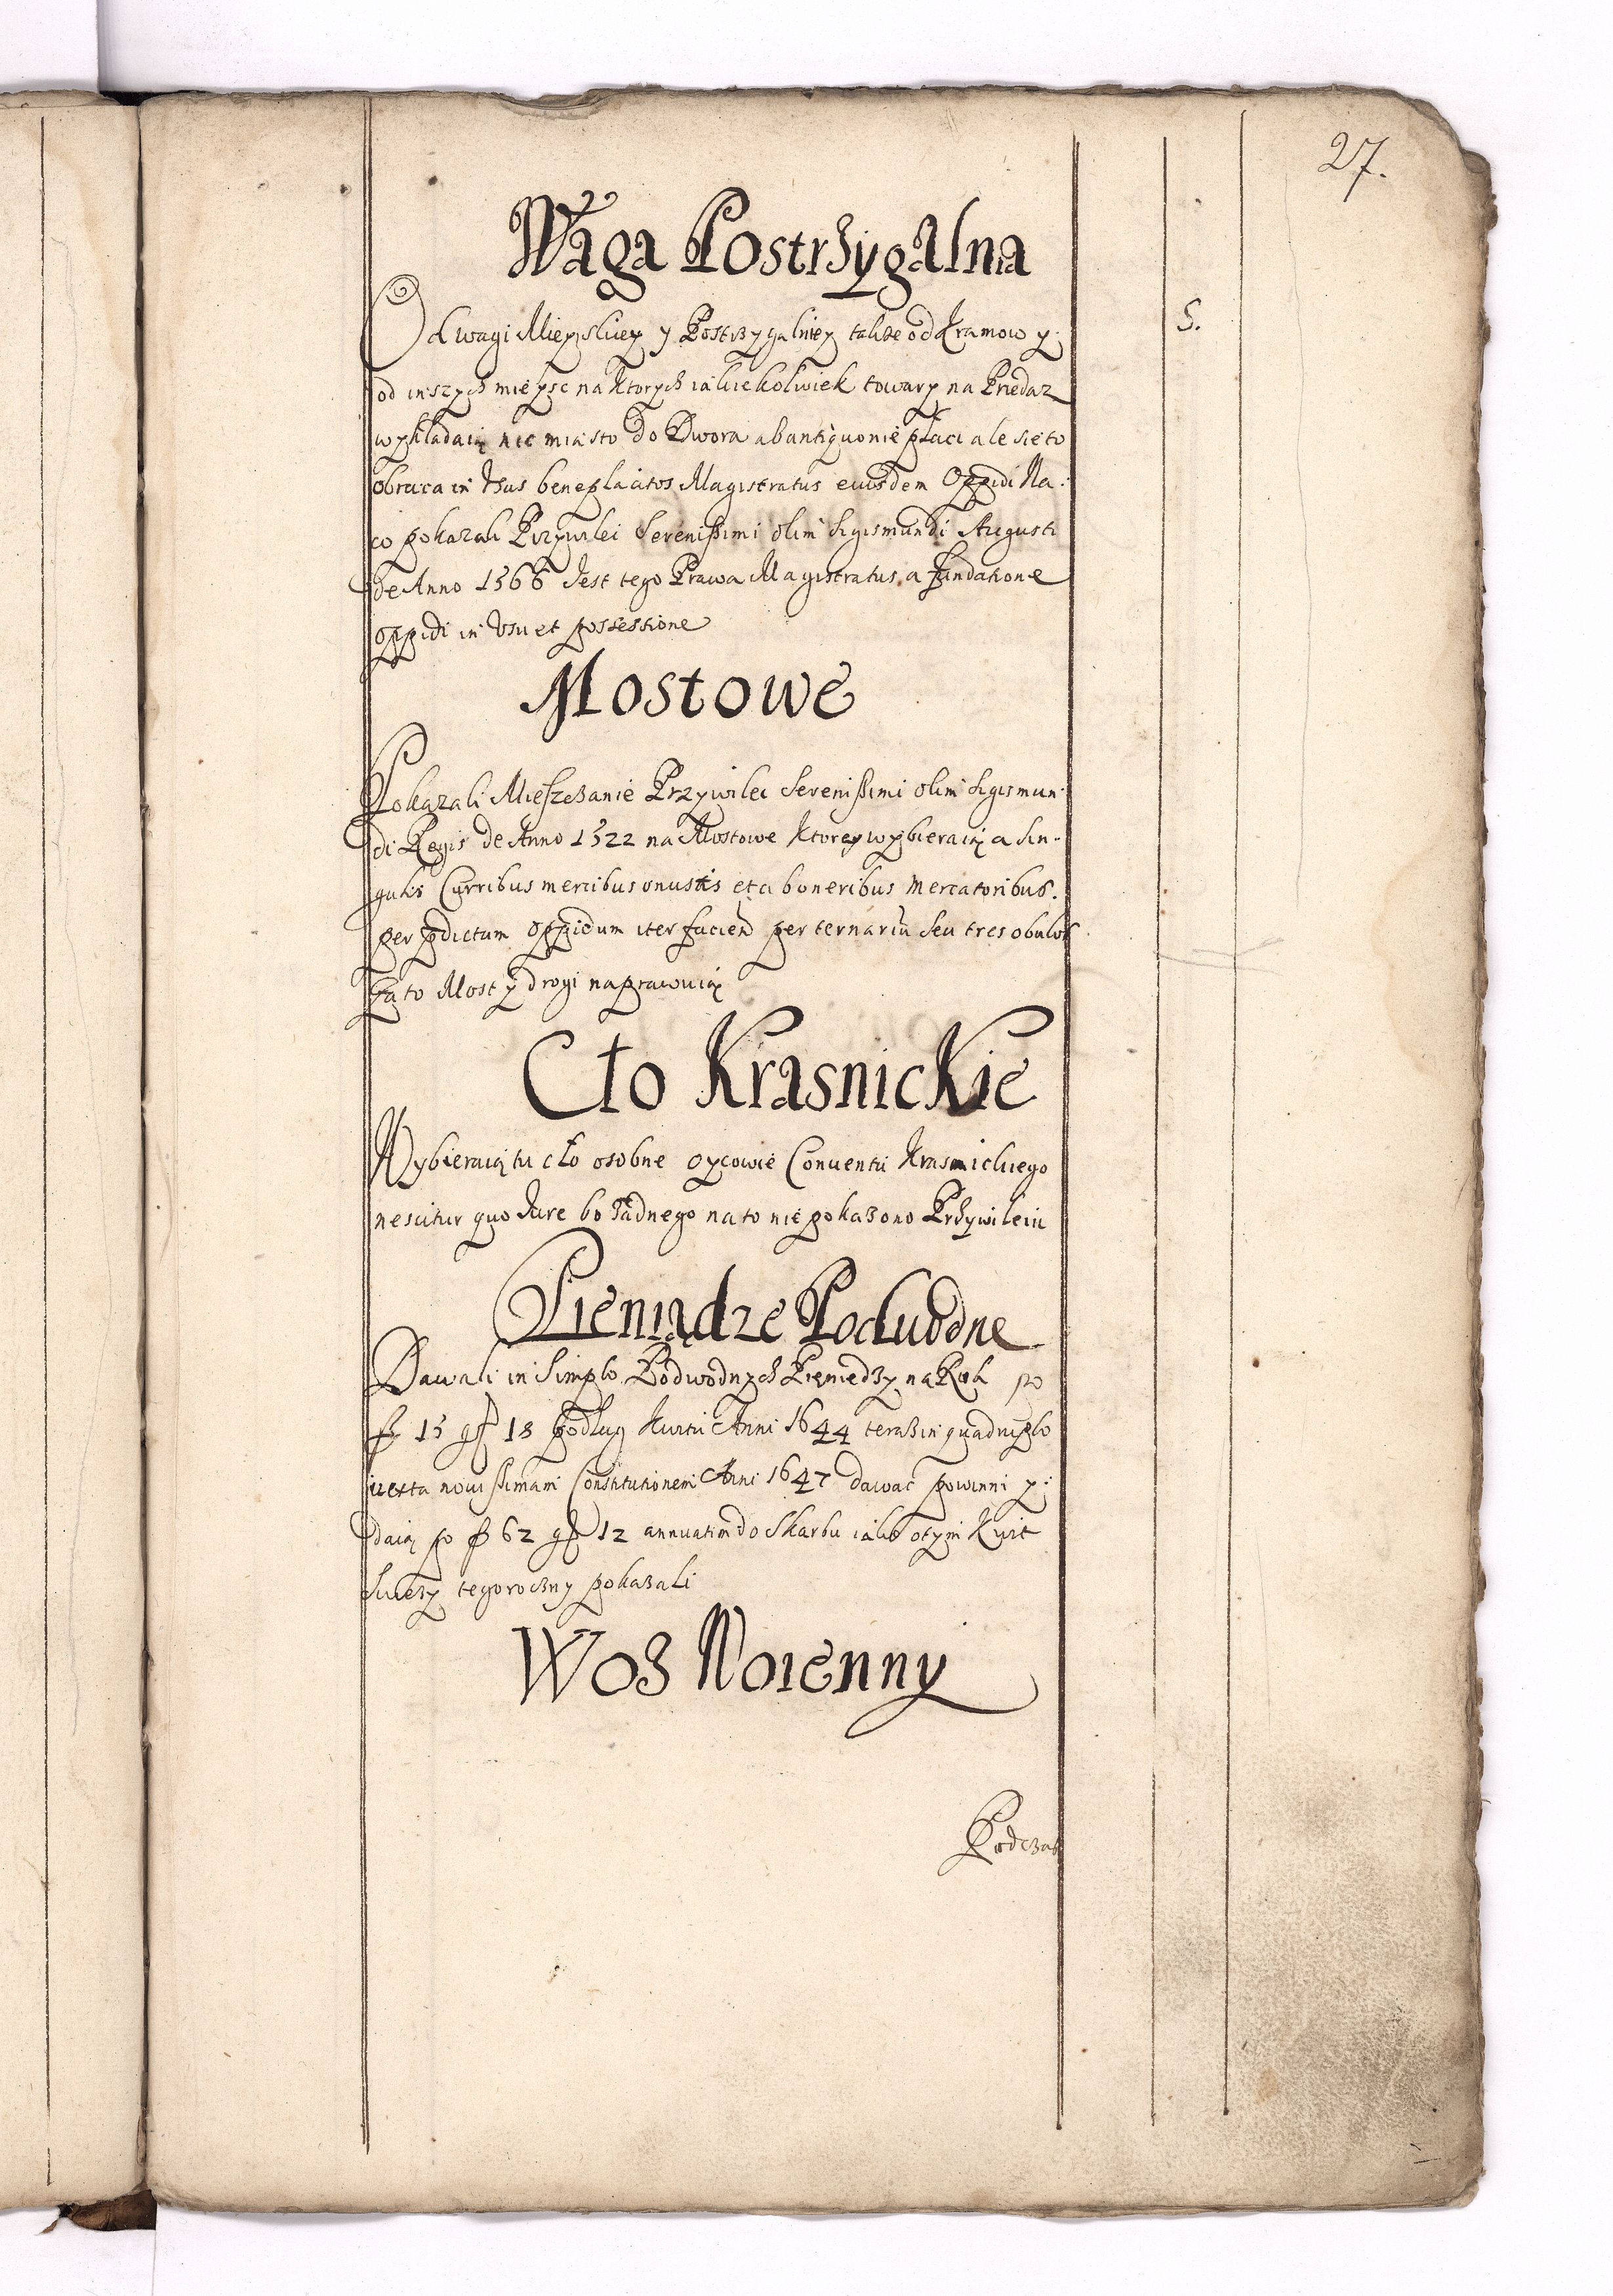 27.
Waga Postrzygalna
Od wagi Mieyskiey y Postrzygalniey takze od Kramow y
S.
od inszych mieysc na ktorych iakiekolwiek towary na Przedaz
wykładaią nic miasto do Dwora ab antiquo nie płaci ale sie to
obraca in Usus beneplacitos Magistratus eiusdem Oppidi Na
co pokazali Przywilei Serenissimi olim Sigismundi Augusti
de Anno 1566 Jest tego Prawa Magistratus a fundatione
oppidi in Usu et possessione
Mostowe
Pokazali Mieszczanie Przywilei Serenissimi olim Sigismun
di Regis de Anno 1522 na Mostowe ktorey wybieraią a Sin-
gulis Curribus mercibus onustis et ab oneribus Mercatoribus.
per pdictum Oppidum iter faciend per ternariu Seu tres obulos
za to Most y drogi naprawuią
Cło Krasnickie
Wybieraią tu cło osobne oycowie Conventu Krasnickiego
nescitur quo Jure bo zadnego na to nie pokazono Przywileiu
Pieniądze Podwodne
Dawali in Simplo Podwodnych Pieniedzy na Rok po
fl 15 gr 18 podług Kwitu Anni 1644 teraz in quadruplo
iuxta novissimam Constitutionem Anni 1647 dawac powinni y
daią po fl 62 gr 12 annuatim do Skarbu iako o tym Kwit
Swiezy tegoroczny pokazali
Woz Woienny
Podczas